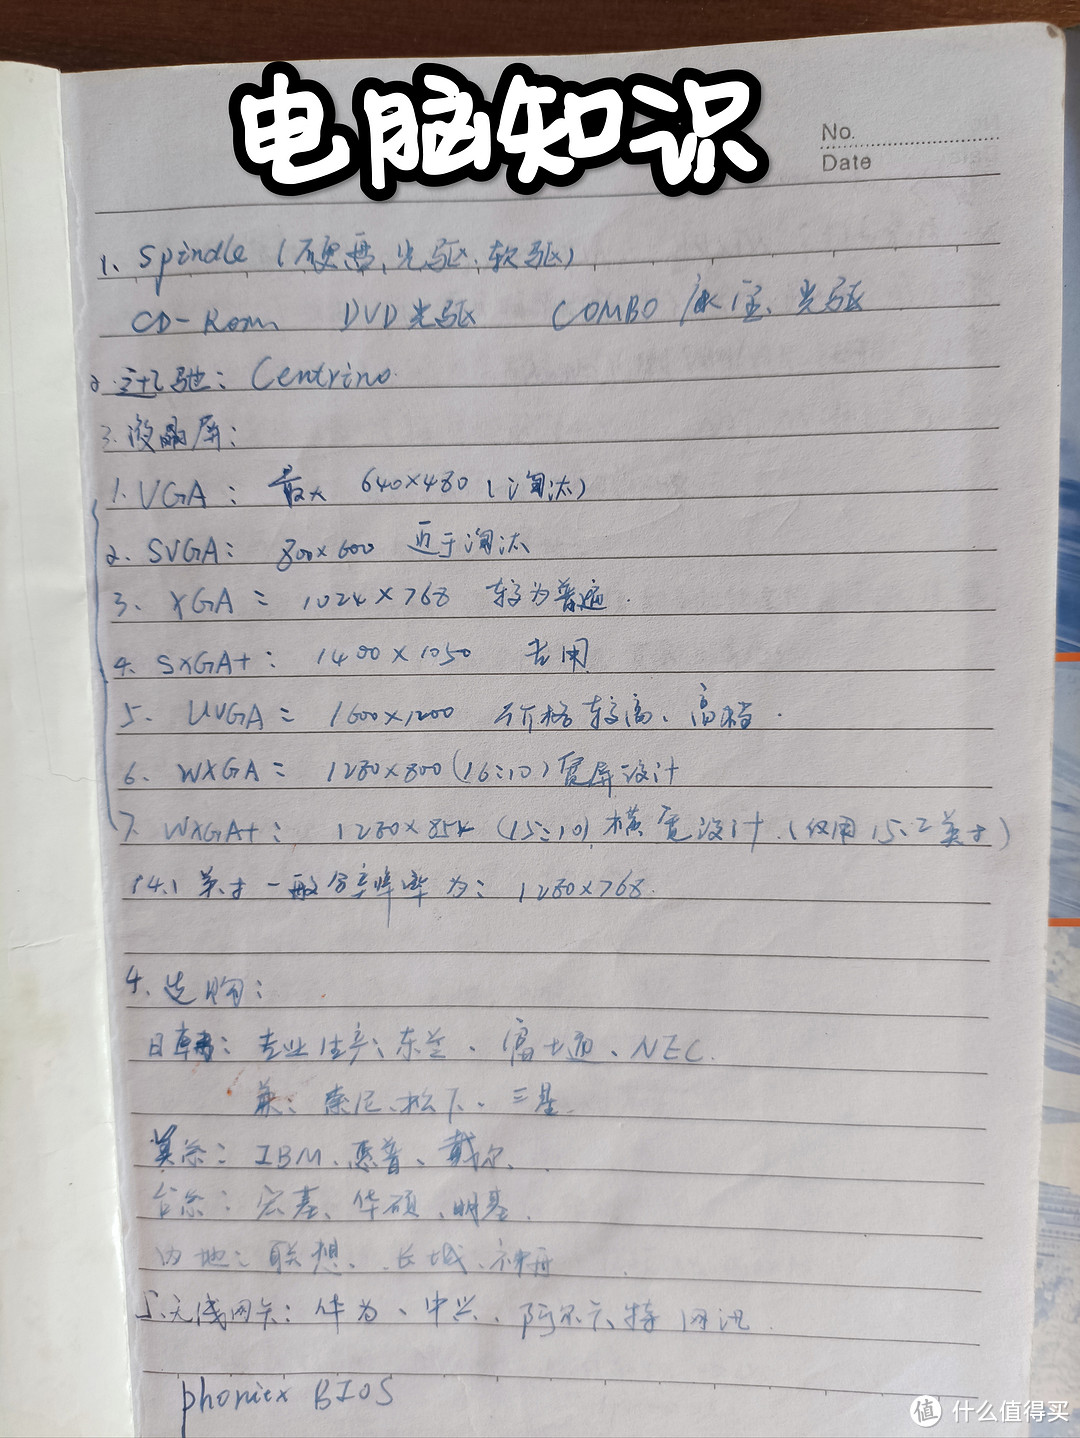 电脑知识
No.
Date
1、Spindle（硬盘,光驱、软驱）
CD-Rom DVD光驱 COMBO 康宝、光驱
2.迅驰：Centrino.
3.液晶屏：
1.VGA：最大 640×480（淘汰）
2.SVGA：800×600 近于淘汰
3.XGA：1024×768 较为普遍.
4.SXGA+：1400×1050 专用
5.UVGA：1600×1200 价格较高、高档.
6.WXGA：1280×800（16:10）宽屏设计
7.WXGA+：1280×854（15:10）横宽设计.（仅用15.2英寸）
14.1英寸一般分辨率为：1280×768.
4.选购：
日韩：专业生产：东芝、富士通、NEC.
兼：索尼、松下、三星.
美系：IBM、惠普、戴尔、
台系：宏基、华硕、明基.
内地：联想、长城、神舟
5.无线网关：华为、中兴、阿尔卡特 网讯.
phoniex BIOS
值 什么值得买